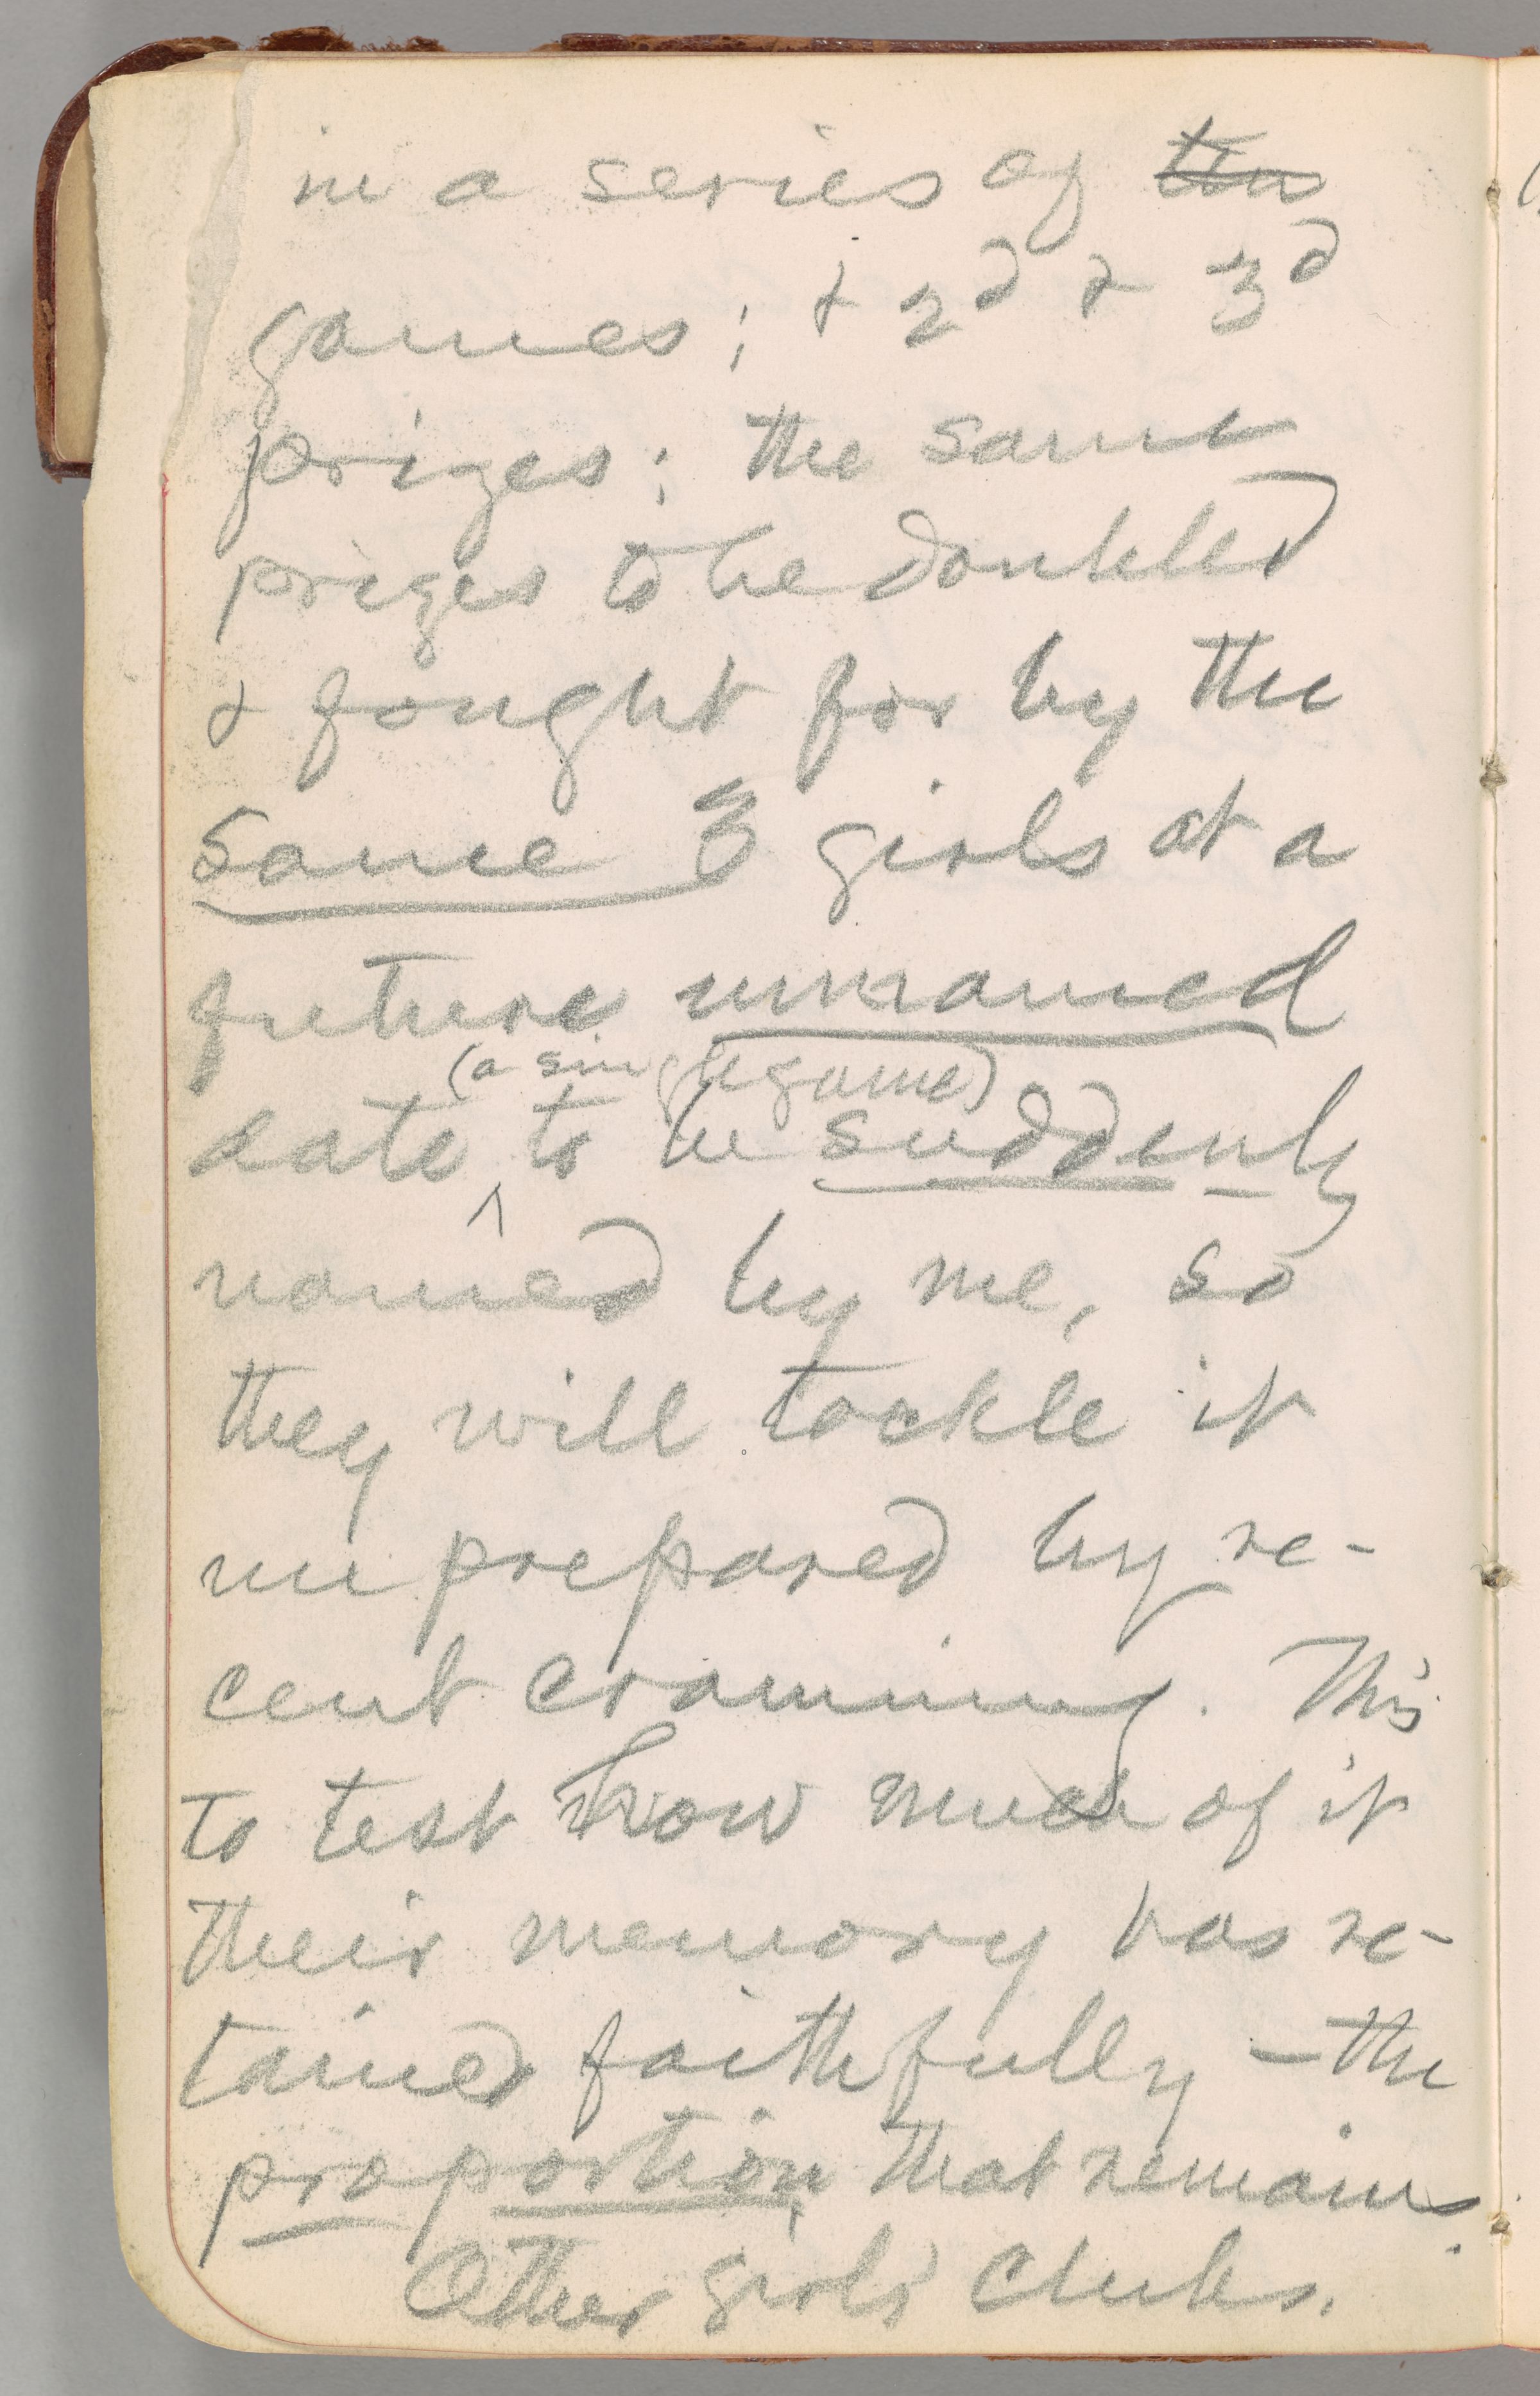 in a series of ten
games; & 2d & 3d
prizes; the same
prizes to be doubled
& fought for by the
same 3 girls at a
future unnamed
(a single game)
date ^ to be suddenly
named by me, so
they will tackle it
unprepared by re-
cent craming. This
to test how much of it
their memory has re-
tained faithfully — the
proportion that remains.
Other girls' clubs.